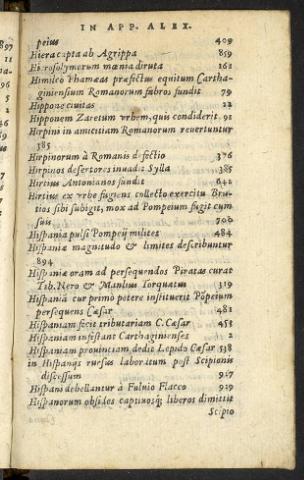 IN APP. ALEX.
peius 409
Hiera capta ab Agrippa 859
Hierosolymorum mœnia diruta 161
Himilco Phameas præfectus equitum Cartha-
giniensium Romanorum subros fundit 79
Hippone ciuitas 22
Hipponem Zaretum vrbem, quis condiderit 91
Hirpini in amicitiam Romanorum reuertuntur
385
Hirpinorum à Romanis defectio 376
Hirpinos desertores inuadit Sylla 385
Hirtius Antonianos fundit 641
Hirtius ex vrbe fugiens collecto exercitu Bru-
tios sibi subigit, mox ad Pompeium fugit cum
suis 700
Hispania pulsi Pompeij milites 484
Hispaniæ magnitudo & limites describuntur
894
Hispaniæ oram ad persequendos Piratas curat
Tib. Nero & Manlius Torquatus 319
Hispaniã cur primo petere instituerit Põpeium
persequens Cæsar 481
Hispaniam fecit tributariam C. Cæsar 458
Hispaniam infestant Carthaginenses 2
Hispaniam prouinciam dedit Lepido Cæsar 538
in Hispanijs rursus laboratum post Scipionis
discessum 947
Hispani debellantur à Fuluio Flacco 929
Hispanorum obsides captiuosq; liberos dimittit
Scipio
897
11
5
2
6